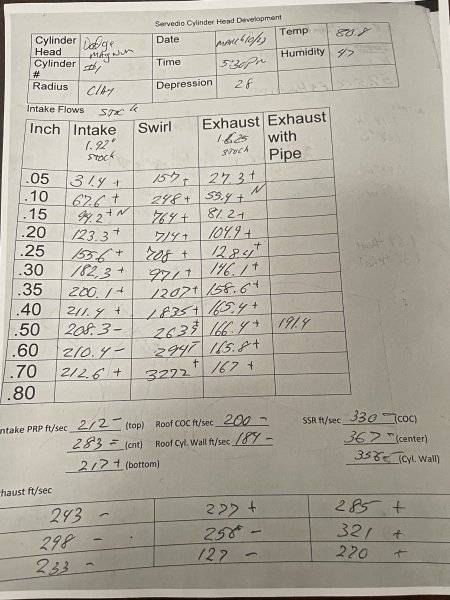 Servedio Cylinder Head Development
Cylinder Head Dodge Magnum Date March/10/23 Temp 80.8
Cylinder # #1 Time 5:30 PM Humidity 47
Radius Clay Depression 28
Intake Flows Stock
Inch Intake 1.92" Stock Swirl Exhaust 1.625 Stock Exhaust with Pipe
.05 31.4 + 157 + 27.3 +
.10 67.6 + 248 + 55.4 + N
.15 94.2 + N 764 + 81.2 +
.20 123.3 + 714 + 104.9 +
.25 155.6 + 708 + 128.4 +
.30 182.3 + 971 + 146.1 +
.35 200.1 + 1207 + 158.6 +
.40 211.4 + 1835 + 165.4 +
.50 208.3 - 2639 + 166.4 + 191.4
.60 210.4 - 2947 165.8 +
.70 212.6 + 3272 + 167 +
.80
ntake PRP ft/sec 212 - (top) Roof COC ft/sec 200 - SSR ft/sec 330 - (COC)
283 = (cnt) Roof Cyl. Wall ft/sec 184 - 367 - (center)
217 + (bottom) (Cyl. Wall)
xhaust ft/sec
243 - 277 + 285 +
298 - 258 - 321 +
233 - 127 - 220 +